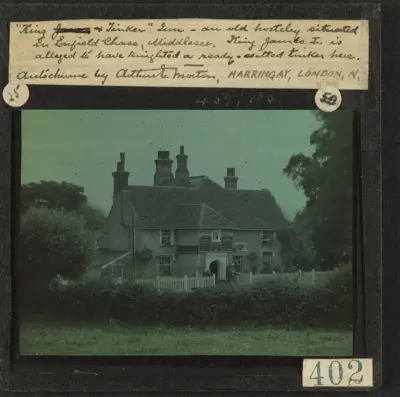 "King James & Tinker" Inn - an old hostelry situated
in Enfield Chase, Middlesex. King James I. is
alleged to have knighted a ready-witted tinker here.
Autochrome by Arthur C. Morton, HARRINGAY, LONDON, N.
25
50
402